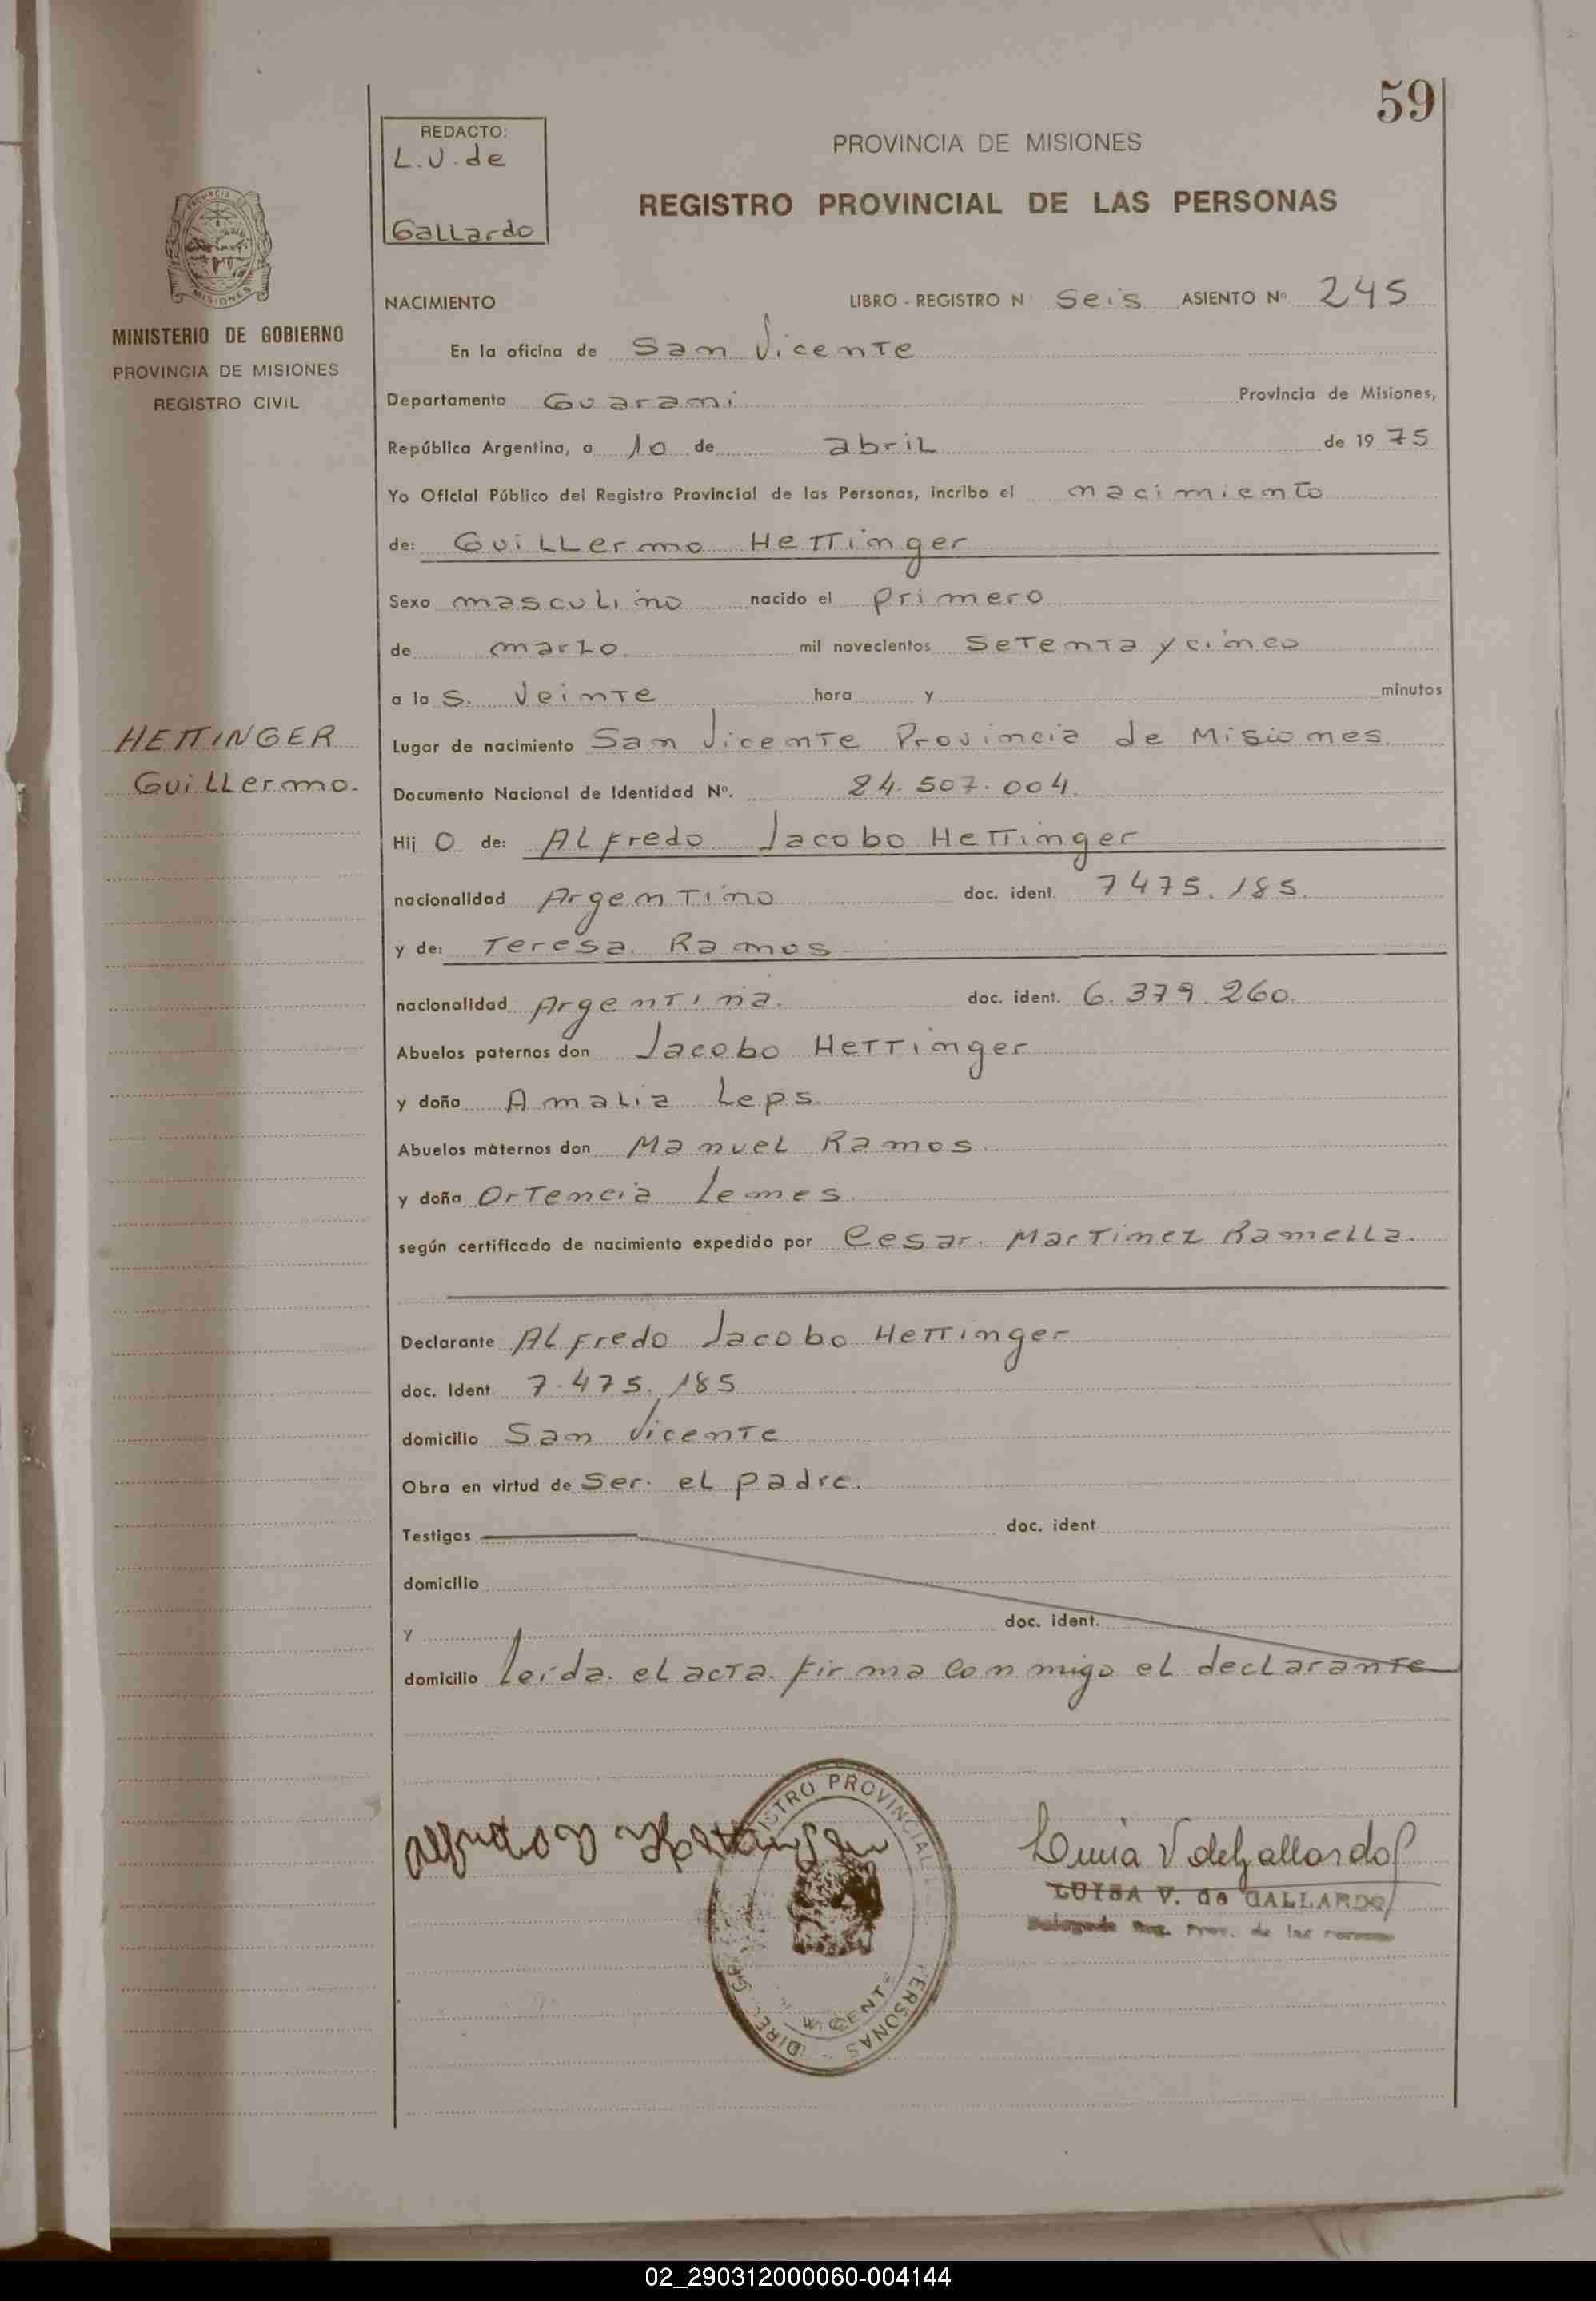 59
REDACTO:
L.V. de
Gallardo
PROVINCIA DE MISIONES
REGISTRO PROVINCIAL DE LAS PERSONAS
PROVINCIA DE
MISIONES
MINISTERIO DE GOBIERNO
PROVINCIA DE MISIONES
REGISTRO CIVIL
NACIMIENTO LIBRO - REGISTRO N° Seis ASIENTO N° 245
En la oficina de San Vicente
Departamento Guarani Provincia de Misiones,
República Argentina, a 10 de abril de 1975
Yo Oficial Público del Registro Provincial de las Personas, incribo el nacimiento
de: Guillermo Hettinger
Sexo masculino nacido el primero
de marzo mil novecientos setenta y cinco
a las veinte hora y minutos
HETTINGER
Guillermo.
Lugar de nacimiento San Vicente Provincia de Misiones.
Documento Nacional de Identidad N°. 24.507.004.
Hijo de: Alfredo Jacobo Hettinger
nacionalidad Argentino doc. ident. 7475.185.
y de: Teresa Ramos
nacionalidad Argentina. doc. ident. 6.379.260.
Abuelos paternos don Jacobo Hettinger
y doña Amalia Leps.
Abuelos maternos don Manuel Ramos
y doña Ortencia Lemes.
según certificado de nacimiento expedido por Cesar Martinez Ramella.
Declarante Alfredo Jacobo Hettinger
doc. Ident. 7.475.185
domicilio San Vicente
Obra en virtud de Ser el padre.
Testigos doc. ident
domicilio
y doc. ident.
domicilio Leida el acta firma conmigo el declarante
REGISTRO PROVINCIAL
PERSONAS - DIREC. G
Luisa V de Gallardo
LUISA V. de GALLARDO
Delegada Reg. Prov. de las Personas
02_290312000060-004144